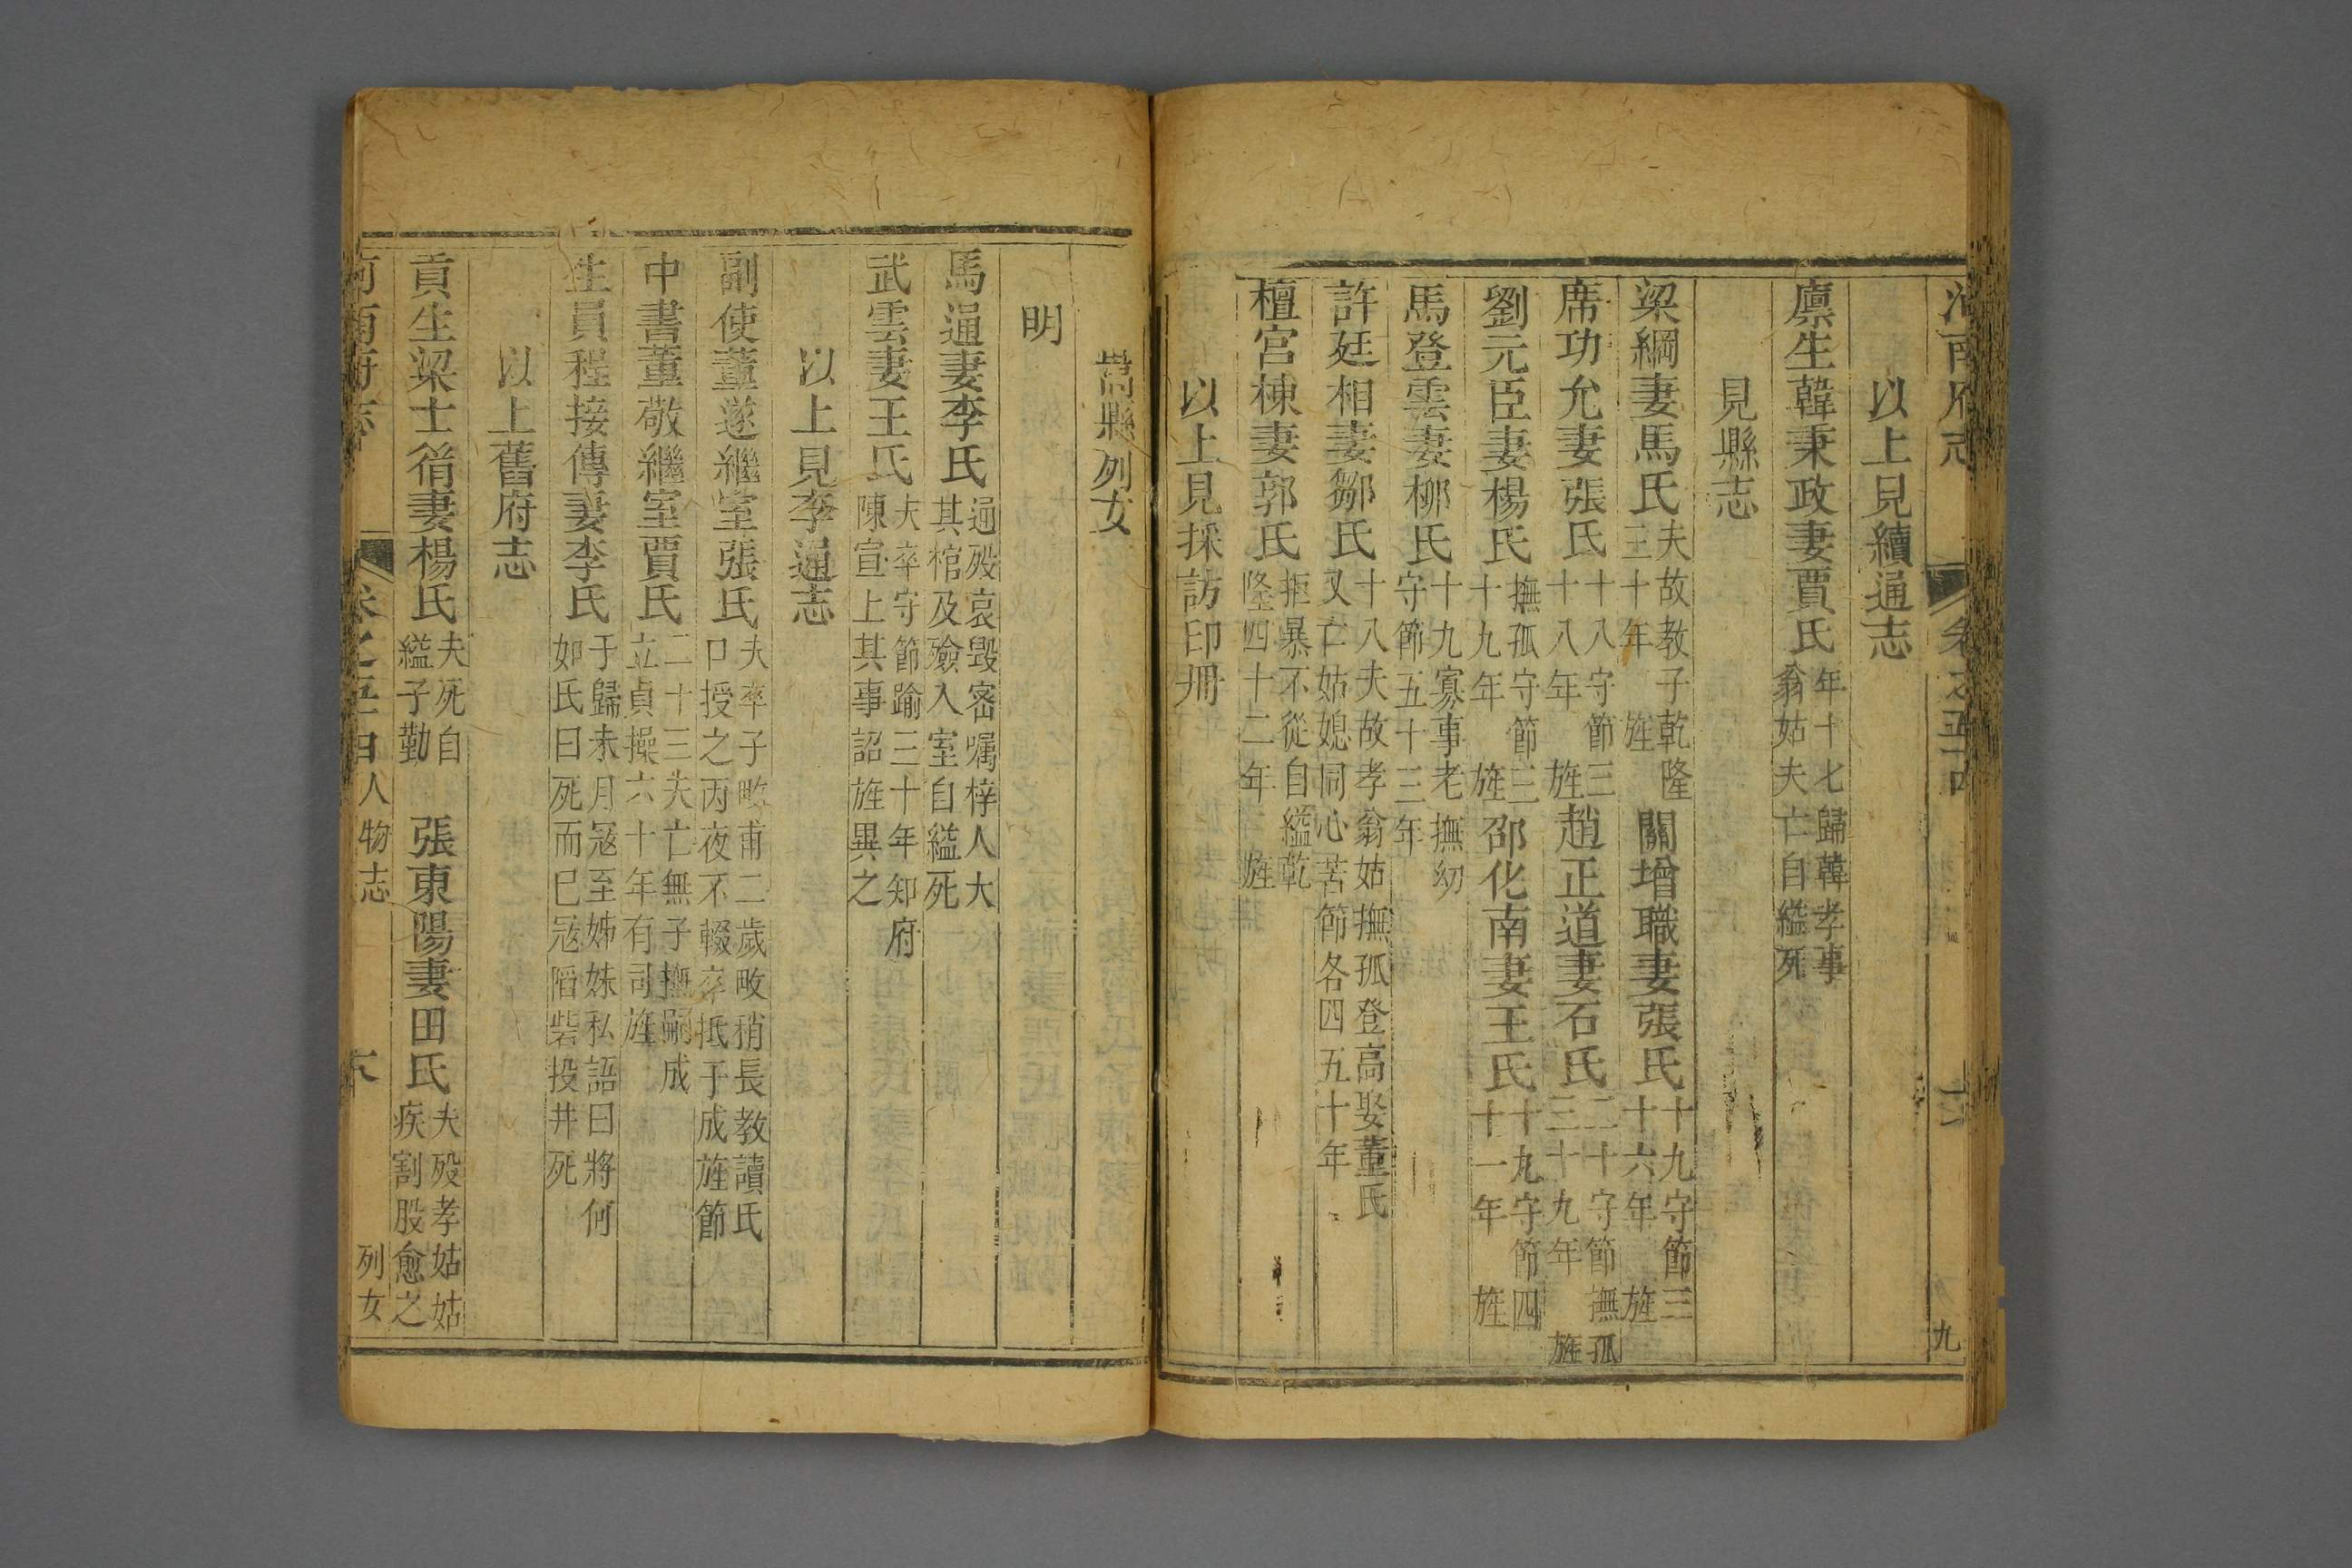 河南府志 卷之五十四 九
以上見續通志
廪生韓秉政妻賈氏 年十七歸韓孝事翁姑夫亡自縊死
見縣志
梁綱妻馬氏 夫故教子乾隆三十年旌 關增職妻張氏 十九守節三十六年旌
席功允妻張氏 十八守節三十八年旌 趙正道妻石氏 二十守節撫孤三十九年旌
劉元臣妻楊氏 撫孤守節三十九年旌 邵化南妻王氏 十九守節四十一年旌
馬登雲妻柳氏 十九寡事老撫幼守節五十三年
許廷相妻鄒氏 十八夫故孝翁姑撫孤登高娶董氏又亡姑媳同心苦節各四五十年
檀宮棟妻郭氏 拒暴不從自縊乾隆四十二年旌
以上見採訪印冊
嵩縣列女
明
馬通妻李氏 通歿哀毁密嘱梓人大其棺及殮入室自縊死
武雲妻王氏 夫卒守節踰三十年知府陳宣上其事詔旌異之
以上見李通志
副使董遂繼室張氏 夫卒子畋甫二歲畋稍長教讀氏口授之丙夜不輟卒抵于成旌節
中書董敬繼室賈氏 二十三夫亡無子撫嗣成立貞操六十年有司旌
生員程接傳妻李氏 于歸未月冦至姊妹私語曰將何如氏曰死而巳冦陷砦投井死
以上舊府志
貢生梁士䈏妻楊氏 夫死自縊子勤 張東陽妻田氏 夫歿孝姑姑疾割股愈之
河南府志 卷之五十四 人物志 列女